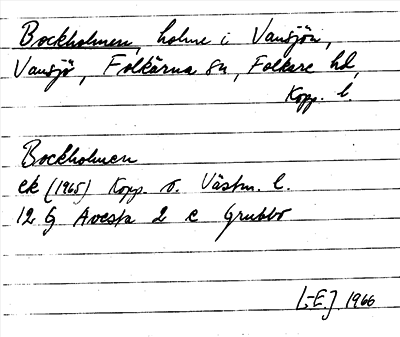 Bockholmen, holme i Vansjön,
Vansjö, Folkärna sn, Folkare hd,
Kopp. l.
Bockholmen
ek (1965) Kopp. o. Västm. l.
12 G Avesta 2 c Grubbo
[-E.] 1966